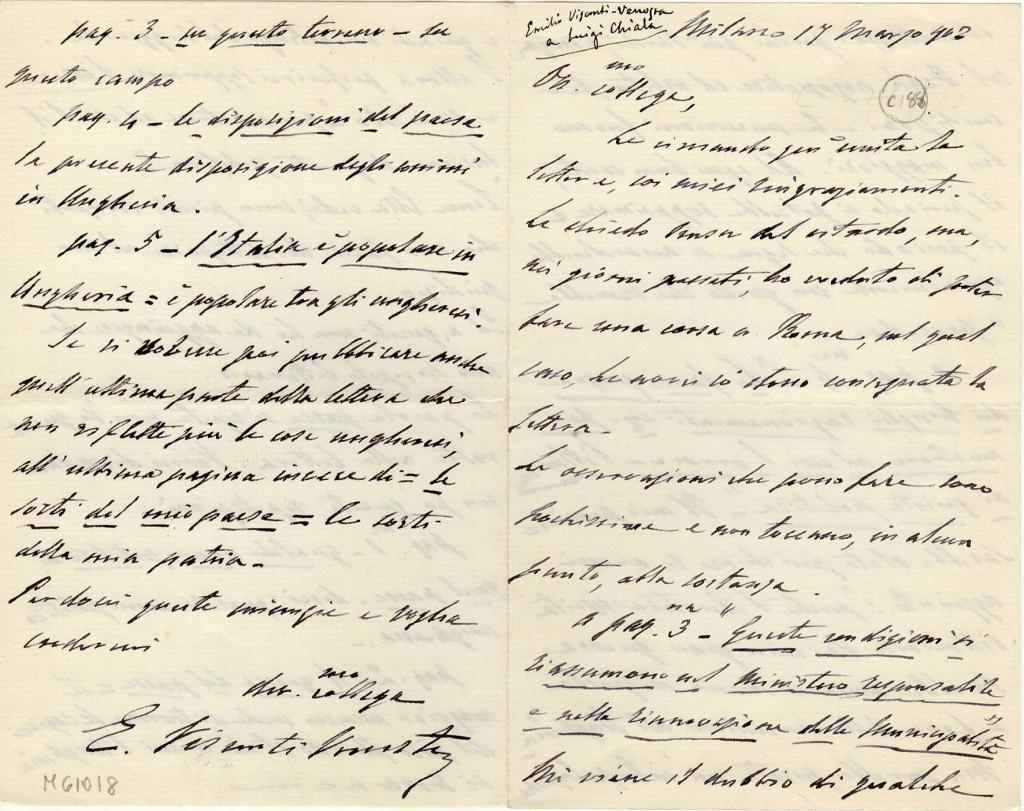 Emilio Visconti-Venosta
a Luigi Chiala
Milano 17 marzo 902
C 188
On. mo collega,
Le rimando qui unita la
lettera, coi miei ringraziamenti.
Le chiedo scusa del ritardo, ma,
nei giorni passati, ho creduto di poter
fare una corsa a Roma, nel qual
caso, Le avrei io stesso consegnata la
lettera.
Le osservazioni che posso fare sono
pochissime e non toccano, in alcun
punto, alla sostanza.
a pag. 3 - "Queste condizioni si
riassumono nel Ministero responsabile
e nella rinnovazione delle Municipalità"
Mi viene il dubbio di qualche
pag. 3 - su questo terreno - su
questo campo
pag. 4 - le disposizioni del paese.
la presente disposizione degli animi
in Ungheria.
pag. 5 - l'Italia è popolare in
Ungheria = è popolare tra gli ungheresi.
Se si volesse poi pubblicare anche
quell'ultima parte della lettera che
non riflette più le cose ungheresi,
all'ultima pagina invece di = le
sorti del mio paese = le sorti
della mia patria.
Perdoni queste minuzie e voglia
credermi
dev. mo collega
E. Visconti Venosta
M61018